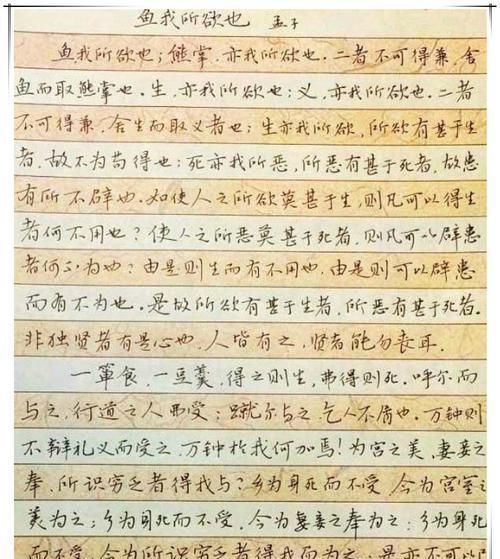 鱼我所欲也 孟子
鱼我所欲也；熊掌，亦我所欲也．二者不可得兼，舍
鱼而取熊掌也．生，亦我所欲也；义，亦我所欲也．二者
不可得兼，舍生而取义者也；生亦我所欲，所欲有甚于生
者，故不为苟得也；死亦我所恶，所恶有甚于死者，故患
有所不辟也．如使人之所欲莫甚于生，则凡可以得生
者何不用也？使人之所恶莫甚于死者，则凡可以辟患
者何不为也？由是则生而有不用也，由是则可以辟患
而有不为也．是故所欲有甚于生者，所恶有甚于死者．
非独贤者有是心也，人皆有之，贤者能勿丧耳．
一箪食，一豆羹，得之则生，弗得则死．呼尔而
与之，行道之人弗受；蹴尔与之，乞人不屑也．万钟则
不辩礼义而受之，万钟于我何加焉！为宫之美，妻妾之
奉，所识穷乏者得我与？乡为身死而不受，今为宫室之
美为之；乡为身死而不受，今为妻妾之奉为之；乡为身死
而不受，今为所识穷乏者得我而为之，是亦不可以